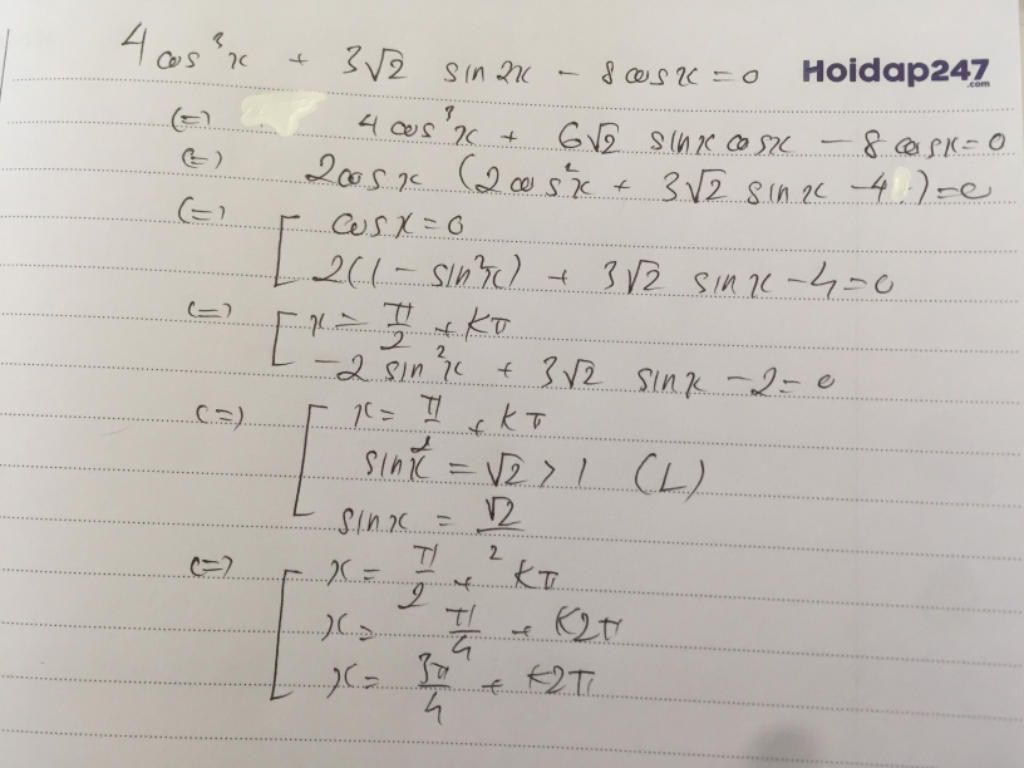 4 cos³x + 3√2 sin 2x − 8 cos x = 0 Hoidap247.com
(=) 4 cos³x + 6√2 sin x cos x − 8 cos x = 0
(=) 2 cos x (2 cos²x + 3√2 sin x − 4) = 0
(=) [ cos x = 0
2(1 − sin²x) + 3√2 sin x − 4 = 0
(=) [ x = π/2 + Kπ
−2 sin²x + 3√2 sin x − 2 = 0
(=) [ x = π/2 + Kπ
sin x = √2 > 1 (L)
sin x = √2/2
(=) [ x = π/2 + Kπ
x = π/4 + K2π
x = 3π/4 + K2π